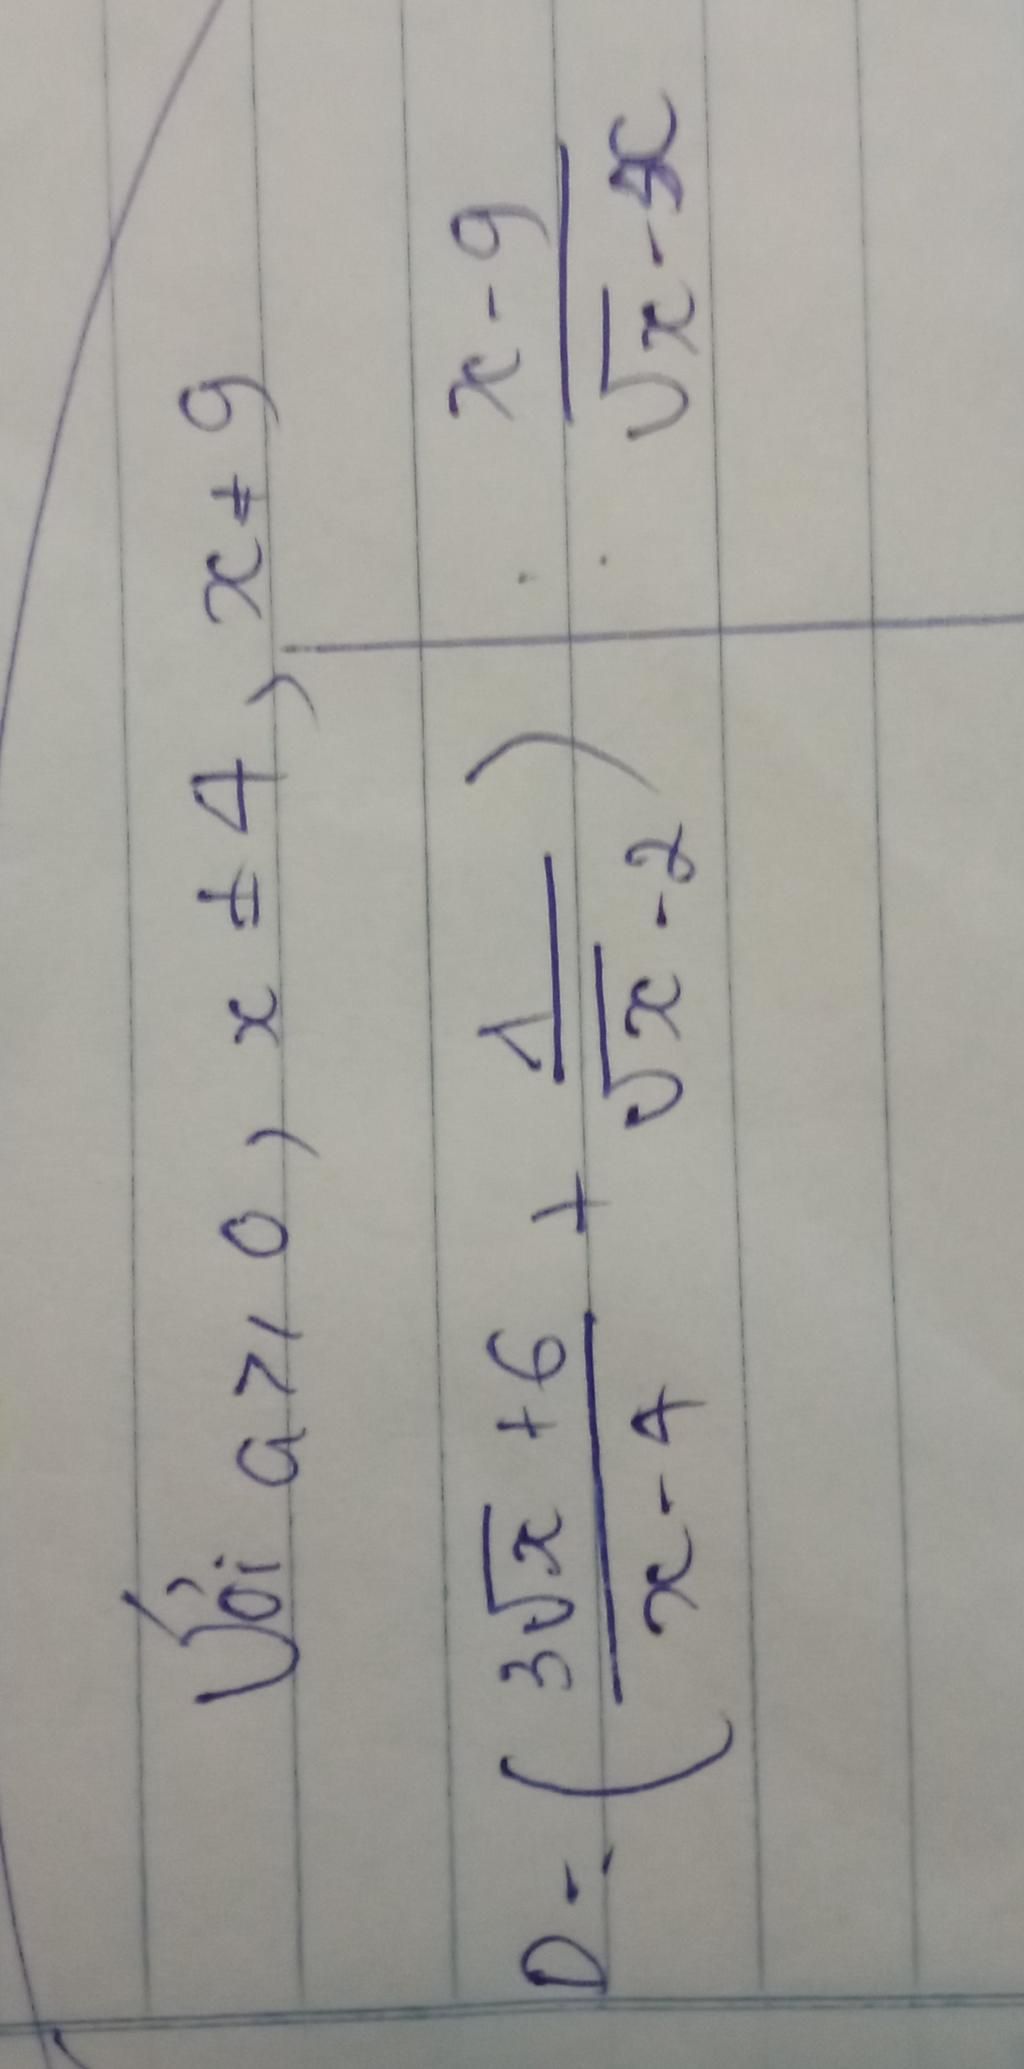 Với a ≥ 0, x ≠ 4, x ≠ 9
D = ( (3√x + 6)/(x - 4) + 1/(√x - 2) ) : (x - 9)/(√x - )